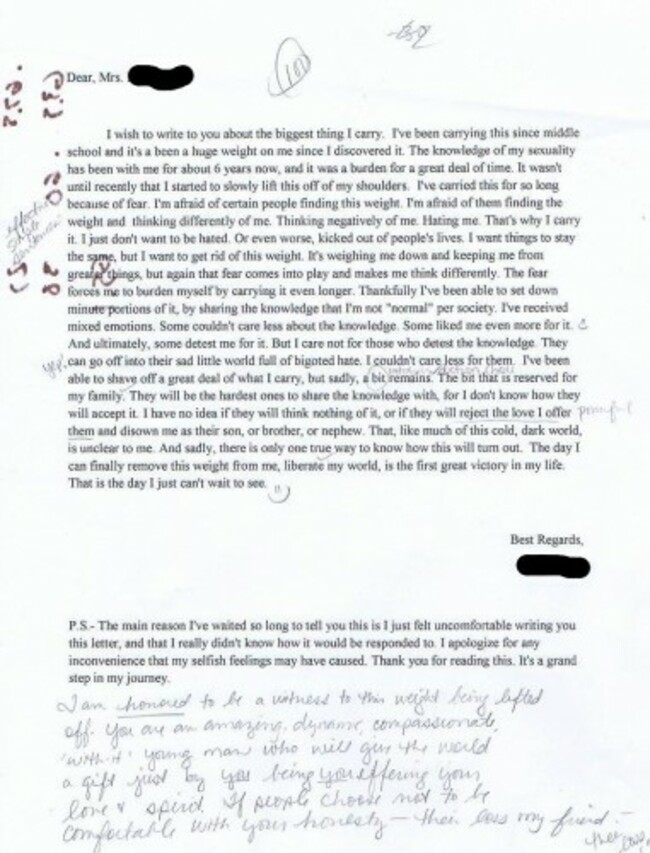 100
Dear, Mrs.
I wish to write to you about the biggest thing I carry. I've been carrying this since middle
school and it's a been a huge weight on me since I discovered it. The knowledge of my sexuality
has been with me for about 6 years now, and it was a burden for a great deal of time. It wasn't
until recently that I started to slowly lift this off of my shoulders. I've carried this for so long
because of fear. I'm afraid of certain people finding this weight. I'm afraid of them finding the
weight and thinking differently of me. Thinking negatively of me. Hating me. That's why I carry
it. I just don't want to be hated. Or even worse, kicked out of people's lives. I want things to stay
the same, but I want to get rid of this weight. It's weighing me down and keeping me from
greater things, but again that fear comes into play and makes me think differently. The fear
forces me to burden myself by carrying it even longer. Thankfully I've been able to set down
minute portions of it, by sharing the knowledge that I'm not "normal" per society. I've received
mixed emotions. Some couldn't care less about the knowledge. Some liked me even more for it.
And ultimately, some detest me for it. But I care not for those who detest the knowledge. They
yep! can go off into their sad little world full of bigoted hate. I couldn't care less for them. I've been
able to shave off a great deal of what I carry, but sadly, a bit remains. The bit that is reserved for
my family. They will be the hardest ones to share the knowledge with, for I don't know how they
will accept it. I have no idea if they will think nothing of it, or if they will reject the love I offer powerful
them and disown me as their son, or brother, or nephew. That, like much of this cold, dark world,
is unclear to me. And sadly, there is only one true way to know how this will turn out. The day I
can finally remove this weight from me, liberate my world, is the first great victory in my life.
That is the day I just can't wait to see.
Best Regards,
P.S.- The main reason I've waited so long to tell you this is I just felt uncomfortable writing you
this letter, and that I really didn't know how it would be responded to. I apologize for any
inconvenience that my selfish feelings may have caused. Thank you for reading this. It's a grand
step in my journey.
I am honored to be a witness to this weight being lifted
off. You are an amazing, dynamic, compassionate,
'with-it' young man who will give the world
a gift just by you being you offering your
love & spirit. If people choose not to be
comfortable with your honesty – their loss my friend –
their loss!